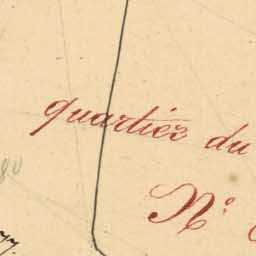 quartier du
N°
80